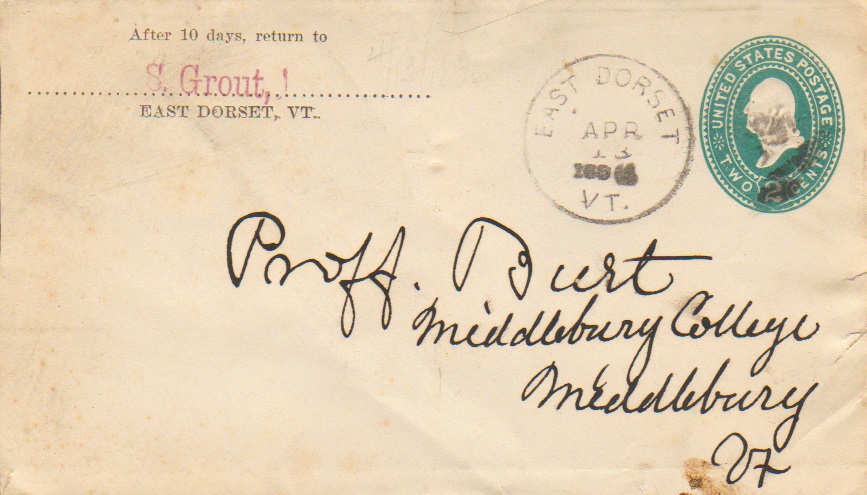 After 10 days, return to
S. Grout,
EAST DORSET, VT.
EAST DORSET
APR
13
VT.
UNITED STATES POSTAGE
TWO CENTS
2
Proff. Burt
Middlebury College
Middlebury
Vt